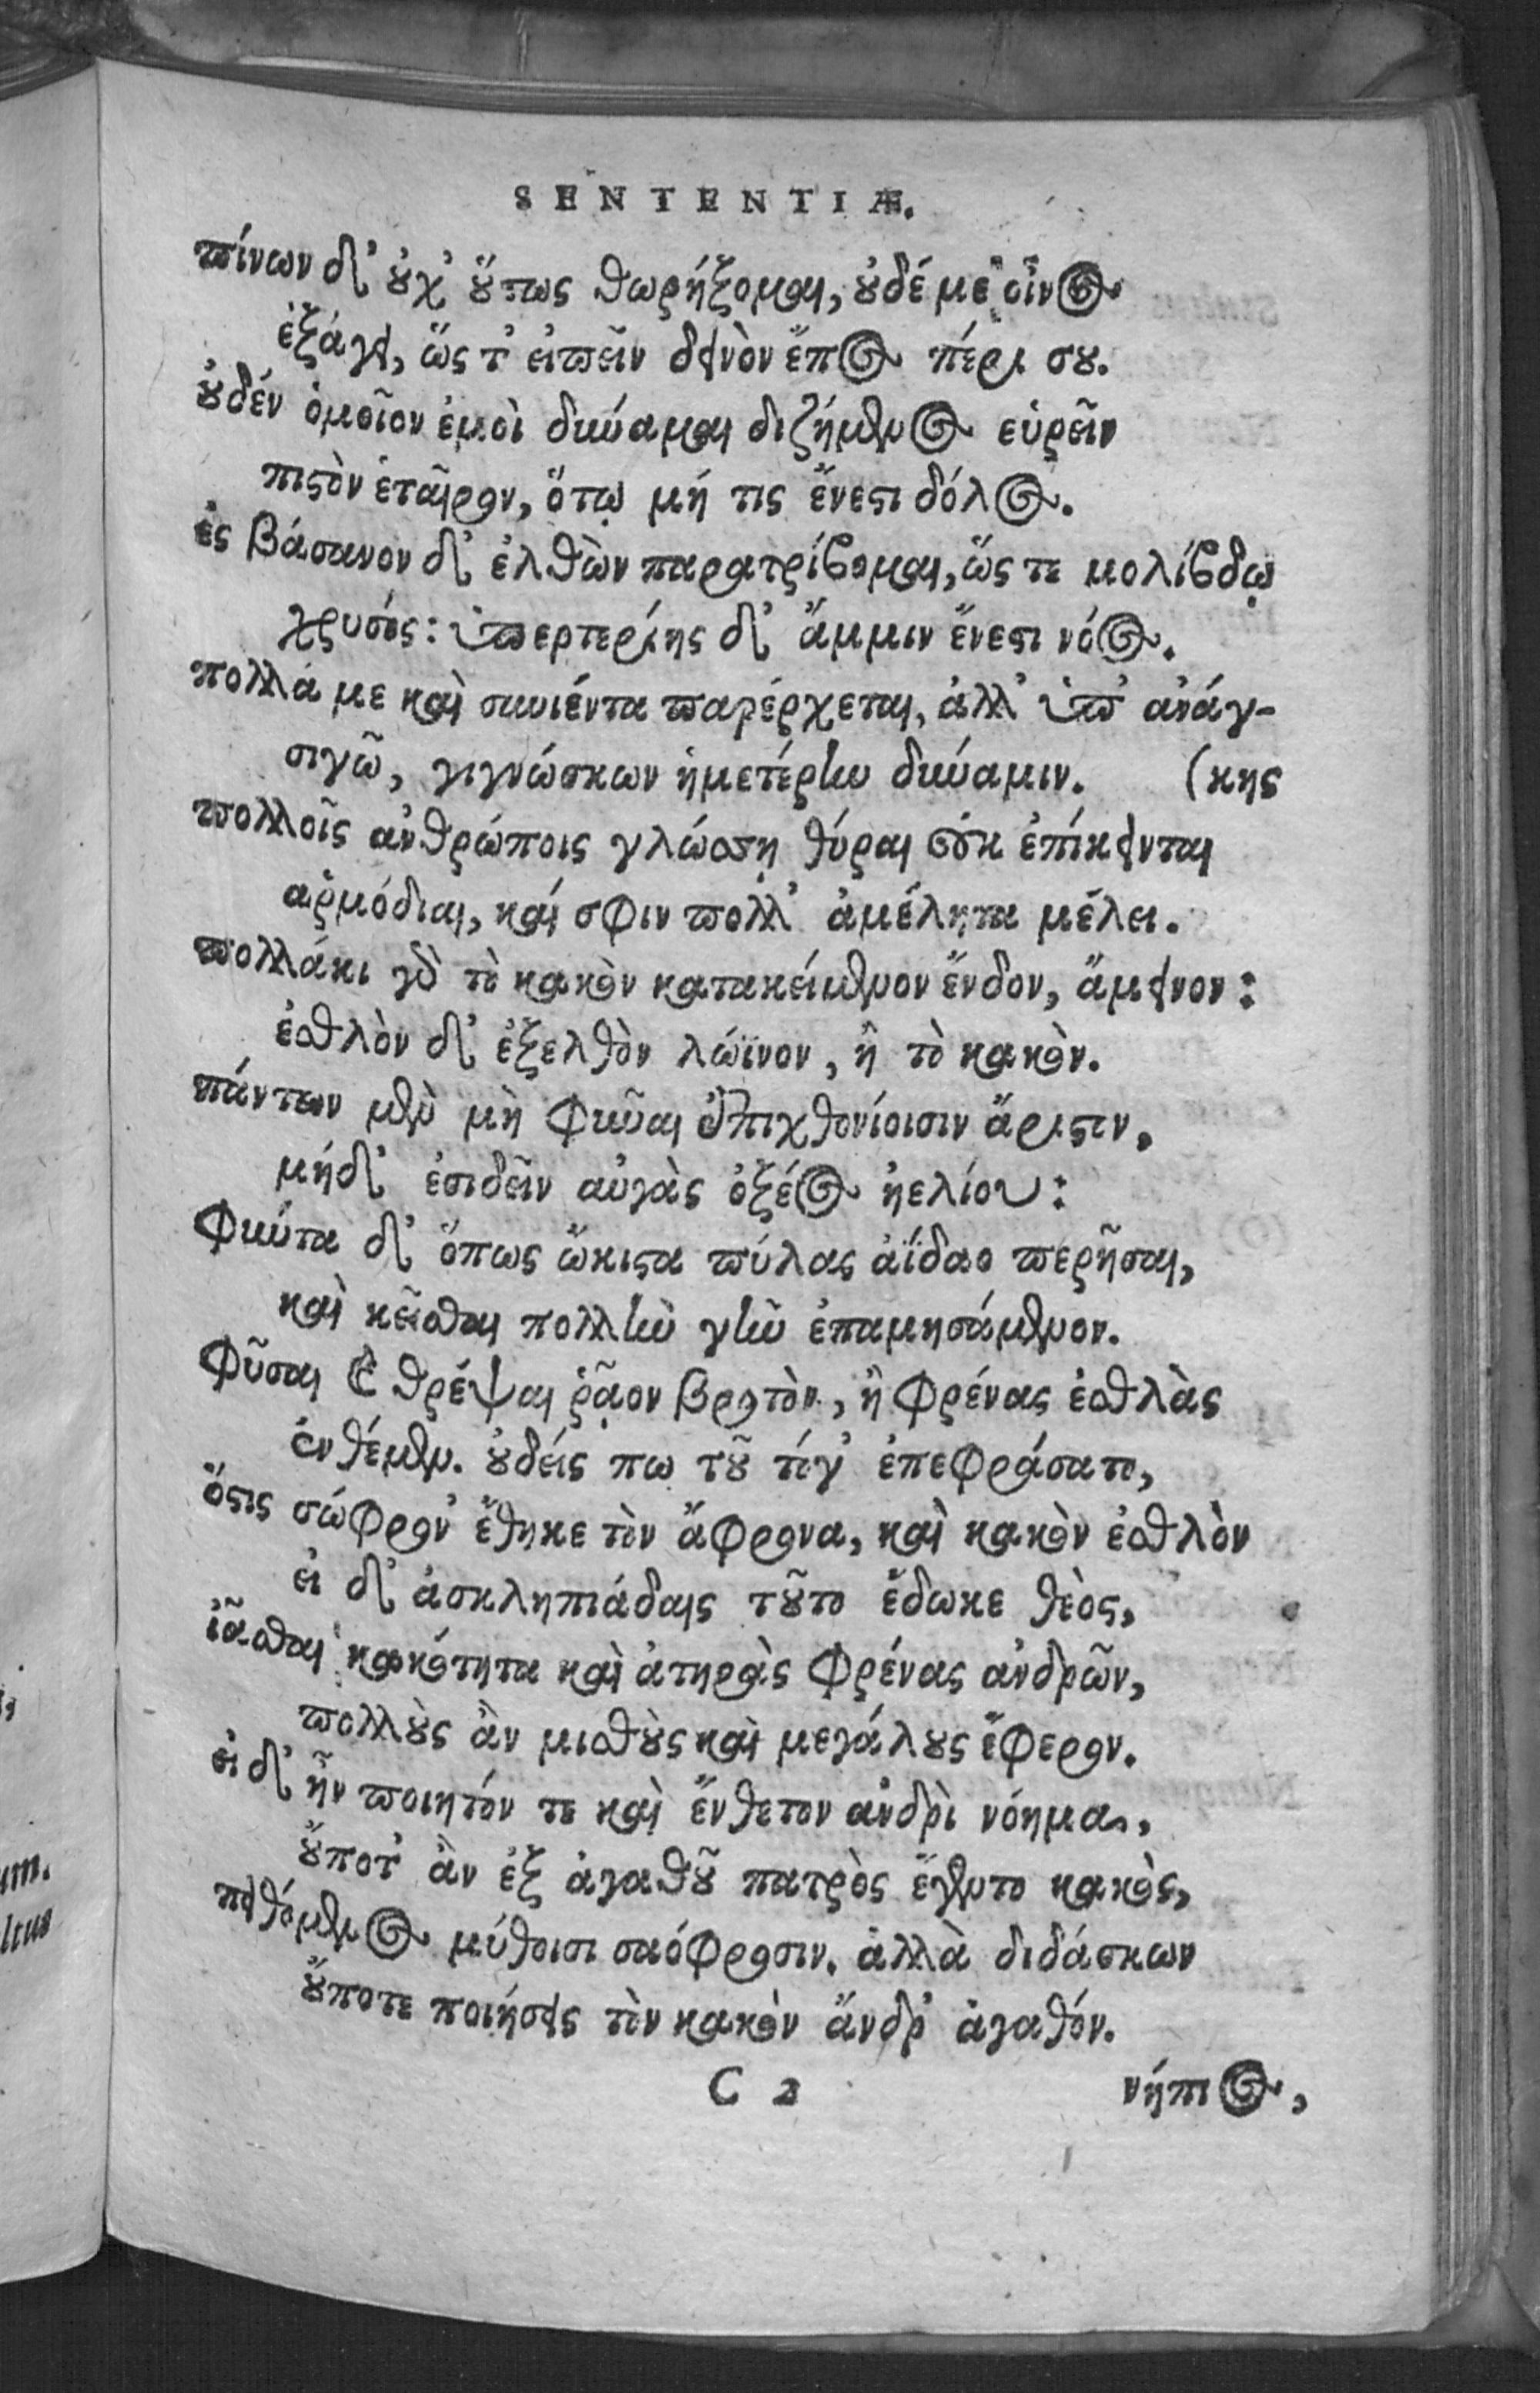 SENTENTIÆ.
πίνων δ' οὐχ οὕτως θωρήξομαι, οὐδέ με οἶνος
ἐξάγει, ὥς τ' εἰπεῖν δεινὸν ἔπος πέρι σου.
οὐδέν ὁμοῖον ἐμοὶ δύναμαι διζήμενος εὑρεῖν
πιστὸν ἑταῖρον, ὅτῳ μή τις ἔνεστι δόλος.
ἐς βάσανον δ' ἐλθὼν παρατρίβομαι, ὥς τε μολίβδῳ
χρυσός: ὑπερτερίης δ' ἄμμιν ἔνεστι νόος.
πολλά με καὶ συνιέντα παρέρχεται, ἀλλ' ὑπ' ἀνάγ-
σιγῶ, γιγνώσκων ἡμετέρην δύναμιν. (κης
πολλοῖς ἀνθρώποις γλώσσῃ θύραι οὐκ ἐπίκεινται
ἁρμόδιαι, καί σφιν πολλ' ἀμέλητα μέλει.
πολλάκι γὰρ τὸ κακὸν κατακείμενον ἔνδον, ἄμεινον:
ἐσθλὸν δ' ἐξελθὸν λώϊνον, ἢ τὸ κακὸν.
πάντων μὲν μὴ φῦναι ἐπιχθονίοισιν ἄριστον,
μήδ' ἐσιδεῖν αὐγὰς ὀξέος ἠελίου:
φύντα δ' ὅπως ὤκιστα πύλας ἀΐδαο περῆσαι,
καὶ κεῖσθαι πολλὴν γῆν ἐπαμησάμενον.
φῦσαι καὶ θρέψαι ῥᾷον βροτὸν, ἢ φρένας ἐσθλὰς
ἐνθέμεν. οὐδείς πω τοῦ τόγ' ἐπεφράσατο,
ὅστις σώφρον' ἔθηκε τὸν ἄφρονα, καὶ κακὸν ἐσθλὸν
εἰ δ' ἀσκληπιάδαις τοῦτο ἔδωκε θεὸς,
ἰᾶσθαι κακότητα καὶ ἀτηρὰς φρένας ἀνδρῶν,
πολλοὺς ἂν μισθοὺς καὶ μεγάλους ἔφερον.
εἰ δ' ἦν ποιητόν τε καὶ ἔνθετον ἀνδρὶ νόημα,
οὔποτ' ἂν ἐξ ἀγαθοῦ πατρὸς ἔγεντο κακὸς,
πειθόμενος μύθοισι σαόφροσιν. ἀλλὰ διδάσκων
οὔποτε ποιήσεις τὸν κακὸν ἄνδρ' ἀγαθόν.
C 2 νήπιος,